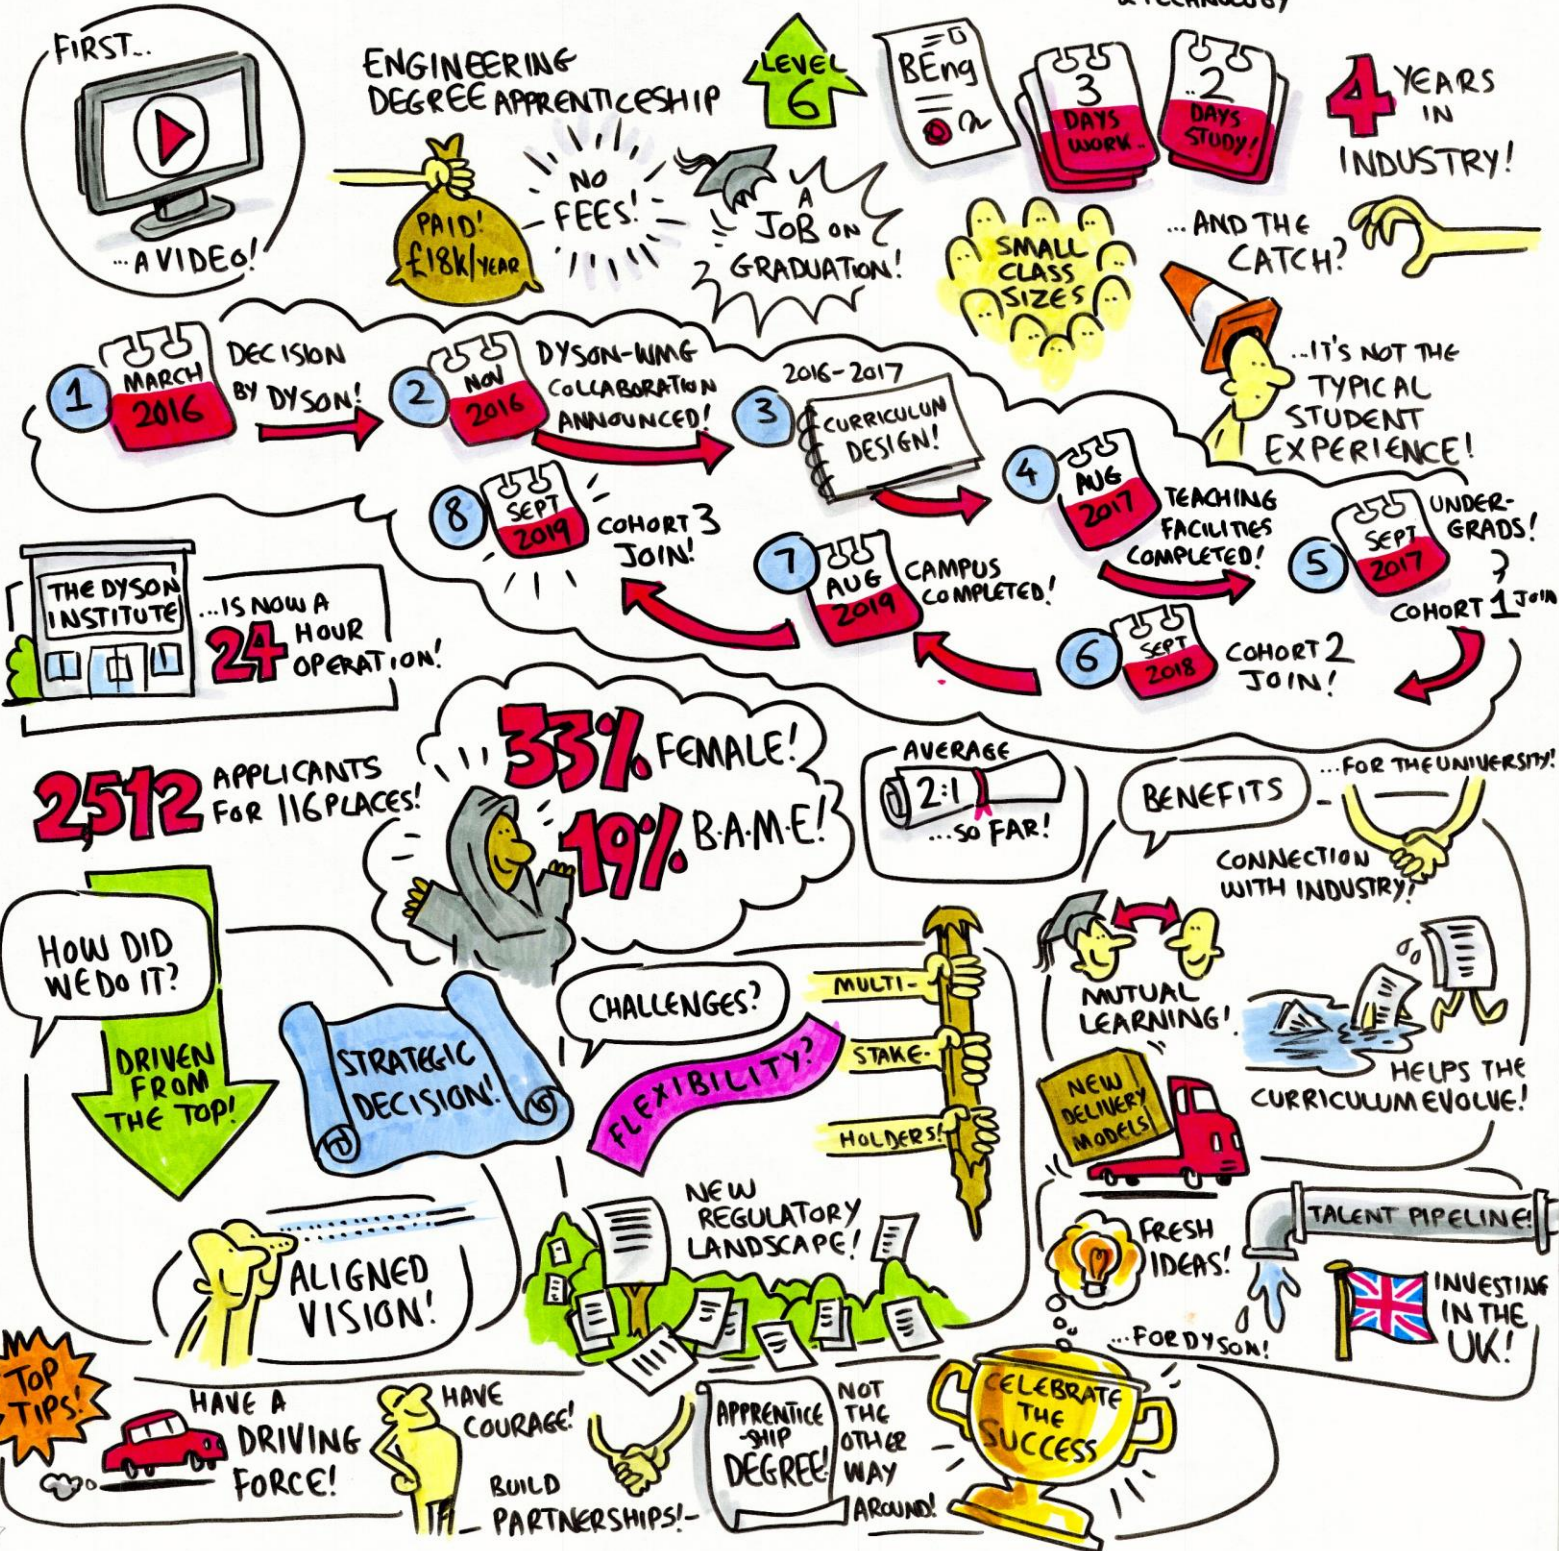 & TECHNOLOGY
FIRST...
...A VIDEO!
ENGINEERING
DEGREE APPRENTICESHIP
LEVEL
6
BEng
3
DAYS
WORK..
..2
DAYS
STUDY!
4 YEARS
IN
INDUSTRY!
PAID!
£18K/YEAR
NO
FEES!
A
JOB ON
GRADUATION!
SMALL
CLASS
SIZES
...AND THE
CATCH?
...IT'S NOT THE
TYPICAL
STUDENT
EXPERIENCE!
1
MARCH
2016
DECISION
BY DYSON!
2
NOV
2016
DYSON-WMG
COLLABORATION
ANNOUNCED!
3
2016-2017
CURRICULUM
DESIGN!
4
AUG
2017
TEACHING
FACILITIES
COMPLETED!
5
SEPT
2017
UNDER-
GRADS!
COHORT 1 JOIN
6
SEPT
2018
COHORT 2
JOIN!
7
AUG
2019
CAMPUS
COMPLETED!
8
SEPT
2019
COHORT 3
JOIN!
THE DYSON
INSTITUTE
...IS NOW A
24 HOUR
OPERATION!
2,512 APPLICANTS
FOR 116 PLACES!
33% FEMALE!
19% B.A.M.E!
AVERAGE
2:1
...SO FAR!
BENEFITS
...FOR THE UNIVERSITY!
CONNECTION
WITH INDUSTRY!
MUTUAL
LEARNING!
HELPS THE
CURRICULUM EVOLVE!
NEW
DELIVERY
MODELS!
FRESH
IDEAS!
TALENT PIPELINE!
INVESTING
IN THE
UK!
...FOR DYSON!
HOW DID
WE DO IT?
DRIVEN
FROM
THE TOP!
STRATEGIC
DECISION!
ALIGNED
VISION!
CHALLENGES?
FLEXIBILITY?
MULTI-
STAKE-
HOLDERS!
NEW
REGULATORY
LANDSCAPE!
TOP
TIPS!
HAVE A
DRIVING
FORCE!
HAVE
COURAGE!
BUILD
PARTNERSHIPS!
APPRENTICE
-SHIP
DEGREE!
NOT
THE
OTHER
WAY
AROUND!
CELEBRATE
THE
SUCCESS